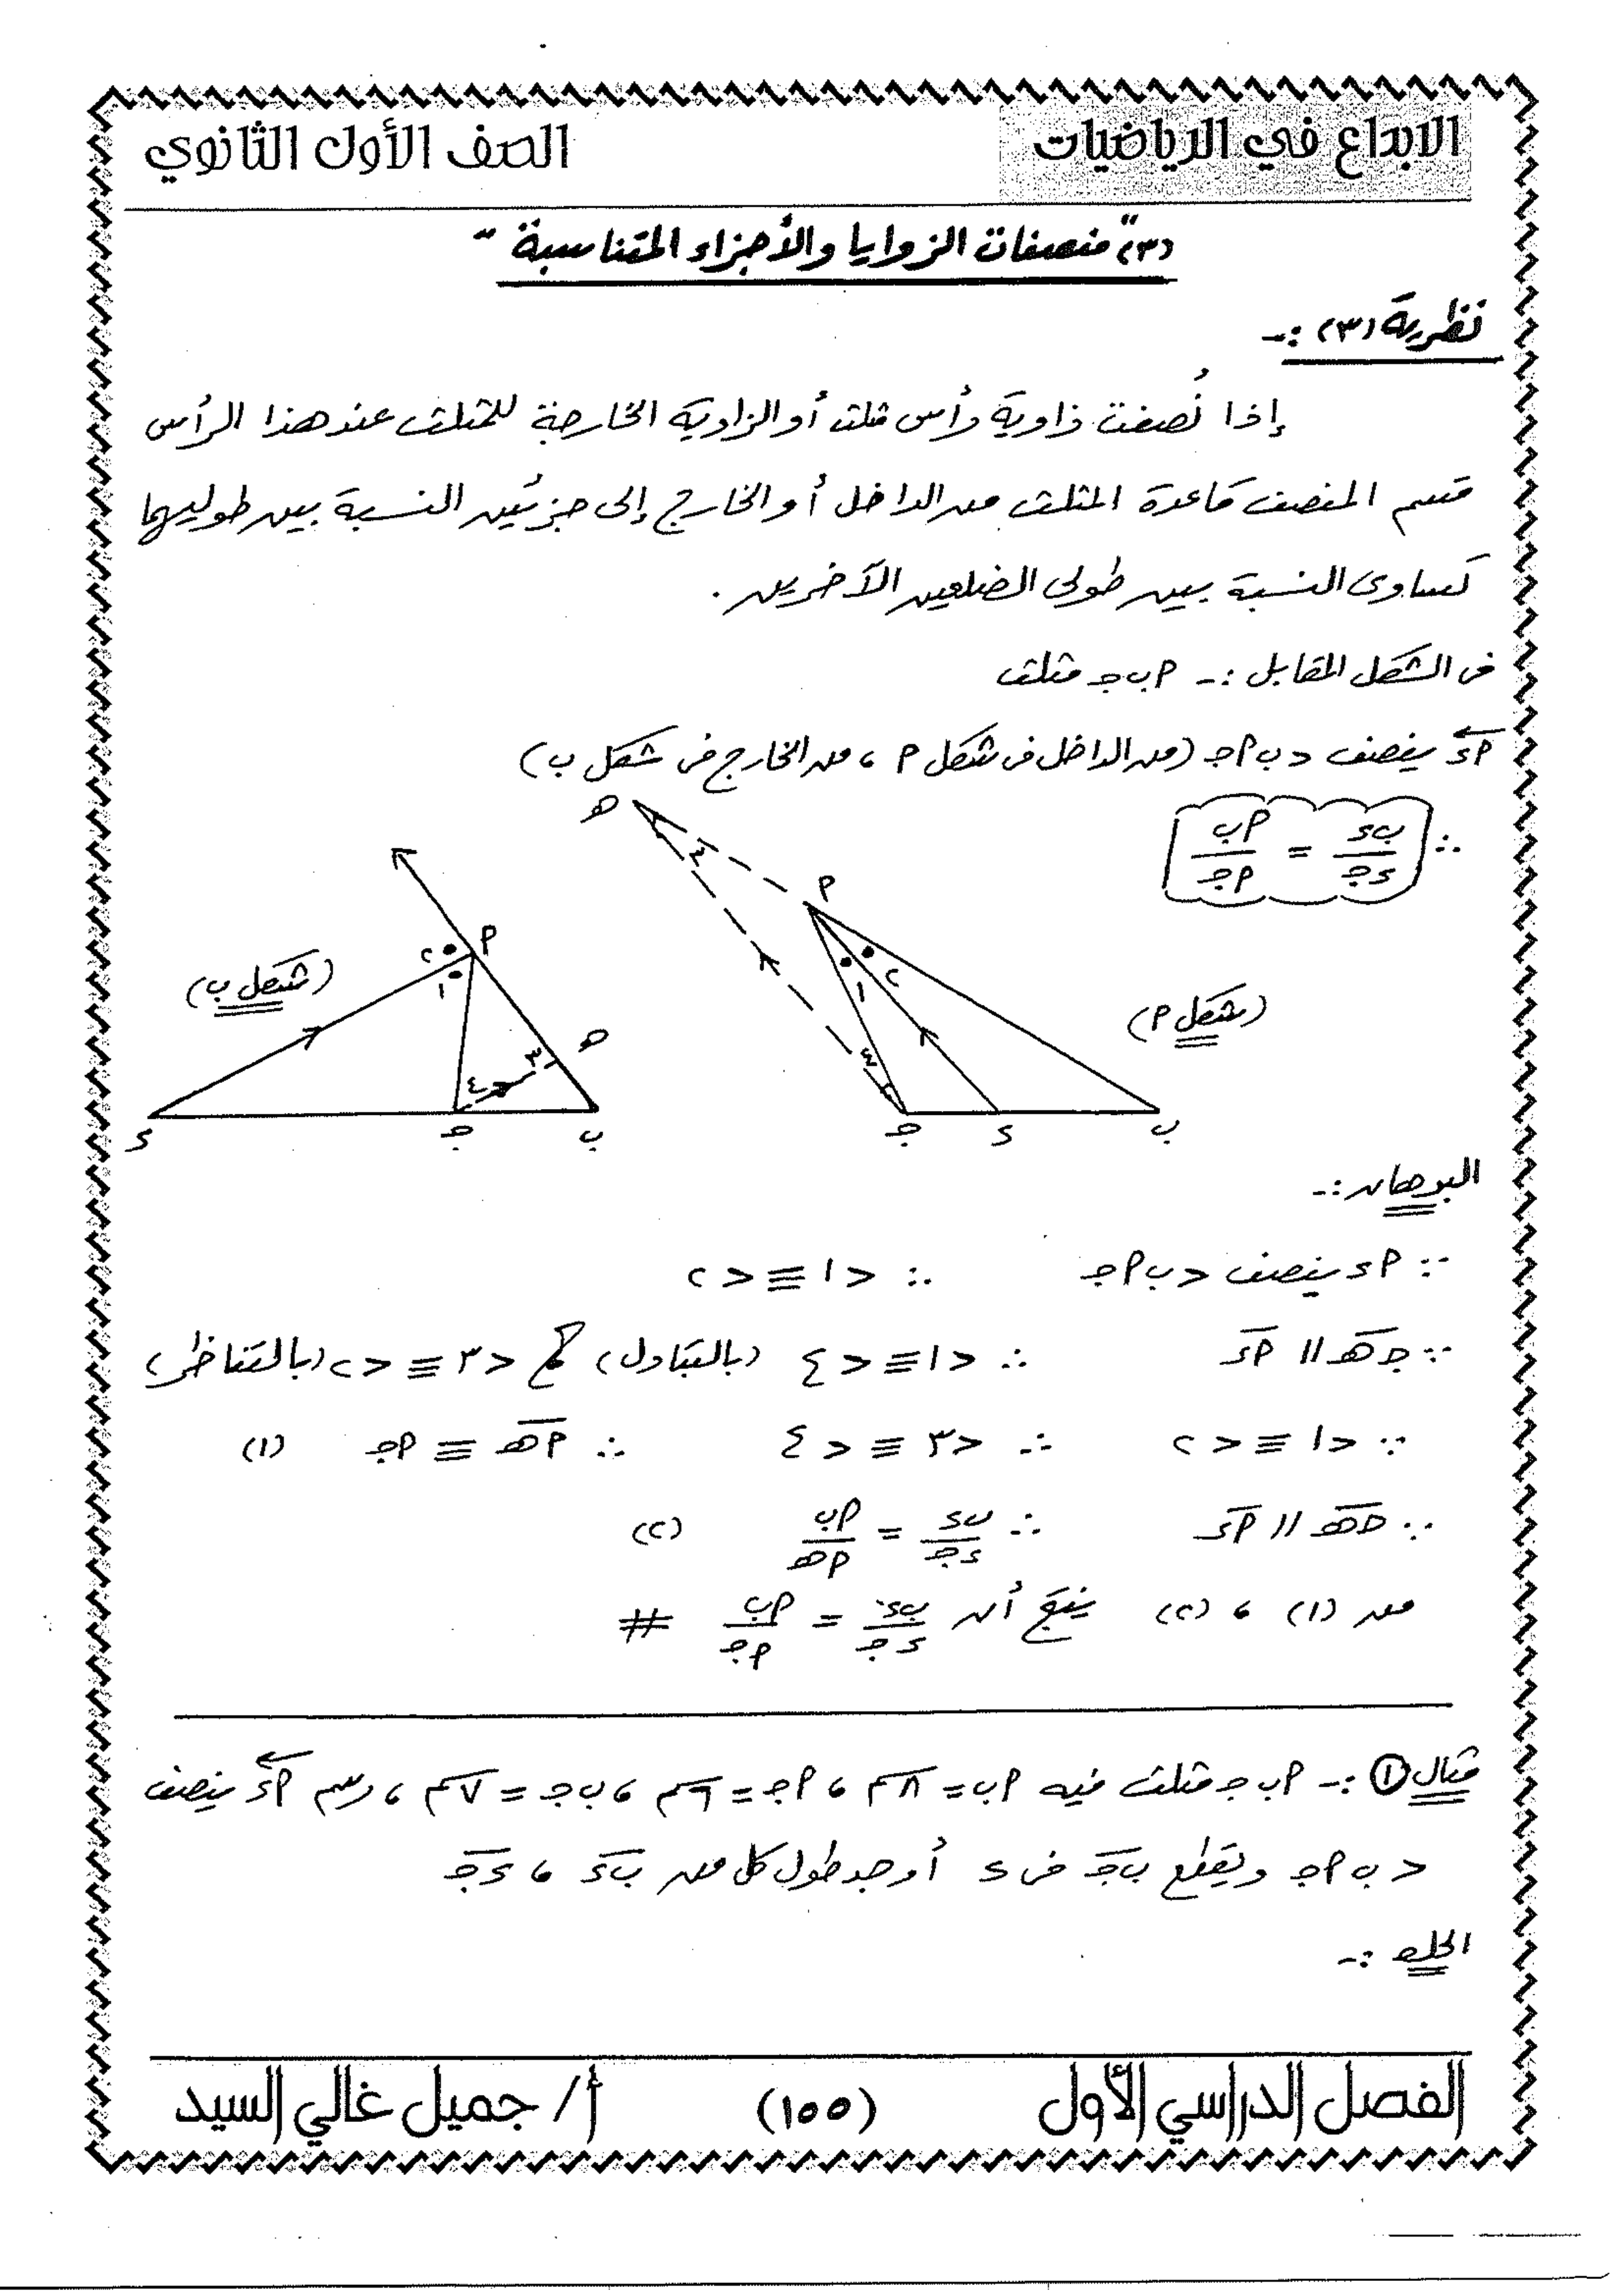 الابداع في الرياضيات
الصف الأول الثانوي
(٣) "منصفات الزوايا والأجزاء المتناسبة"
نظرية (٣) :-
إذا نُصفت زاوية رأس مثلث أو الزاوية الخارجة للمثلث عند هذا الرأس
قسم المنصف قاعدة المثلث من الداخل أو الخارج إلى جزئين النسبة بين طوليهما
تساوى النسبة بين طولى الضلعين الآخرين .
فى الشكل المقابل :- م ب جـ مثلث
م ء ينصف > ب م جـ (من الداخل فى شكل م ، من الخارج فى شكل ب)
∴ ب ء / ء جـ = م ب / م جـ
هـ ٣ م ١ ٢ ٤ جـ ء ب (شكل م)
م ٢ ١ هـ ٣ ٤ ء جـ ب (شكل ب)
البرهان :-
∵ م ء ينصف > ب م جـ ∴ > ١ ≡ > ٢
∵ جـ هـ // م ء ∴ > ١ ≡ > ٤ (بالتبادل) ، > ٣ ≡ > ٢ (بالتناظر)
∵ > ١ ≡ > ٢ ∴ > ٣ ≡ > ٤ ∴ م هـ ≡ م جـ (١)
∵ جـ هـ // م ء ∴ ب ء / ء جـ = م ب / م هـ (٢)
من (١) ، (٢) ينتج أن ب ء / ء جـ = م ب / م جـ #
مثال ① :- م ب جـ مثلث فيه م ب = ٨سم ، م جـ = ٦سم ، ب جـ = ٧سم ، رسم م ء ينصف
> ب م جـ ويقطع ب جـ فى ء أوجد طول كل من ب ء ، ء جـ
الحل :-
الفصل الدراسي الأول
(١٥٥)
أ/ جميل غالي السيد